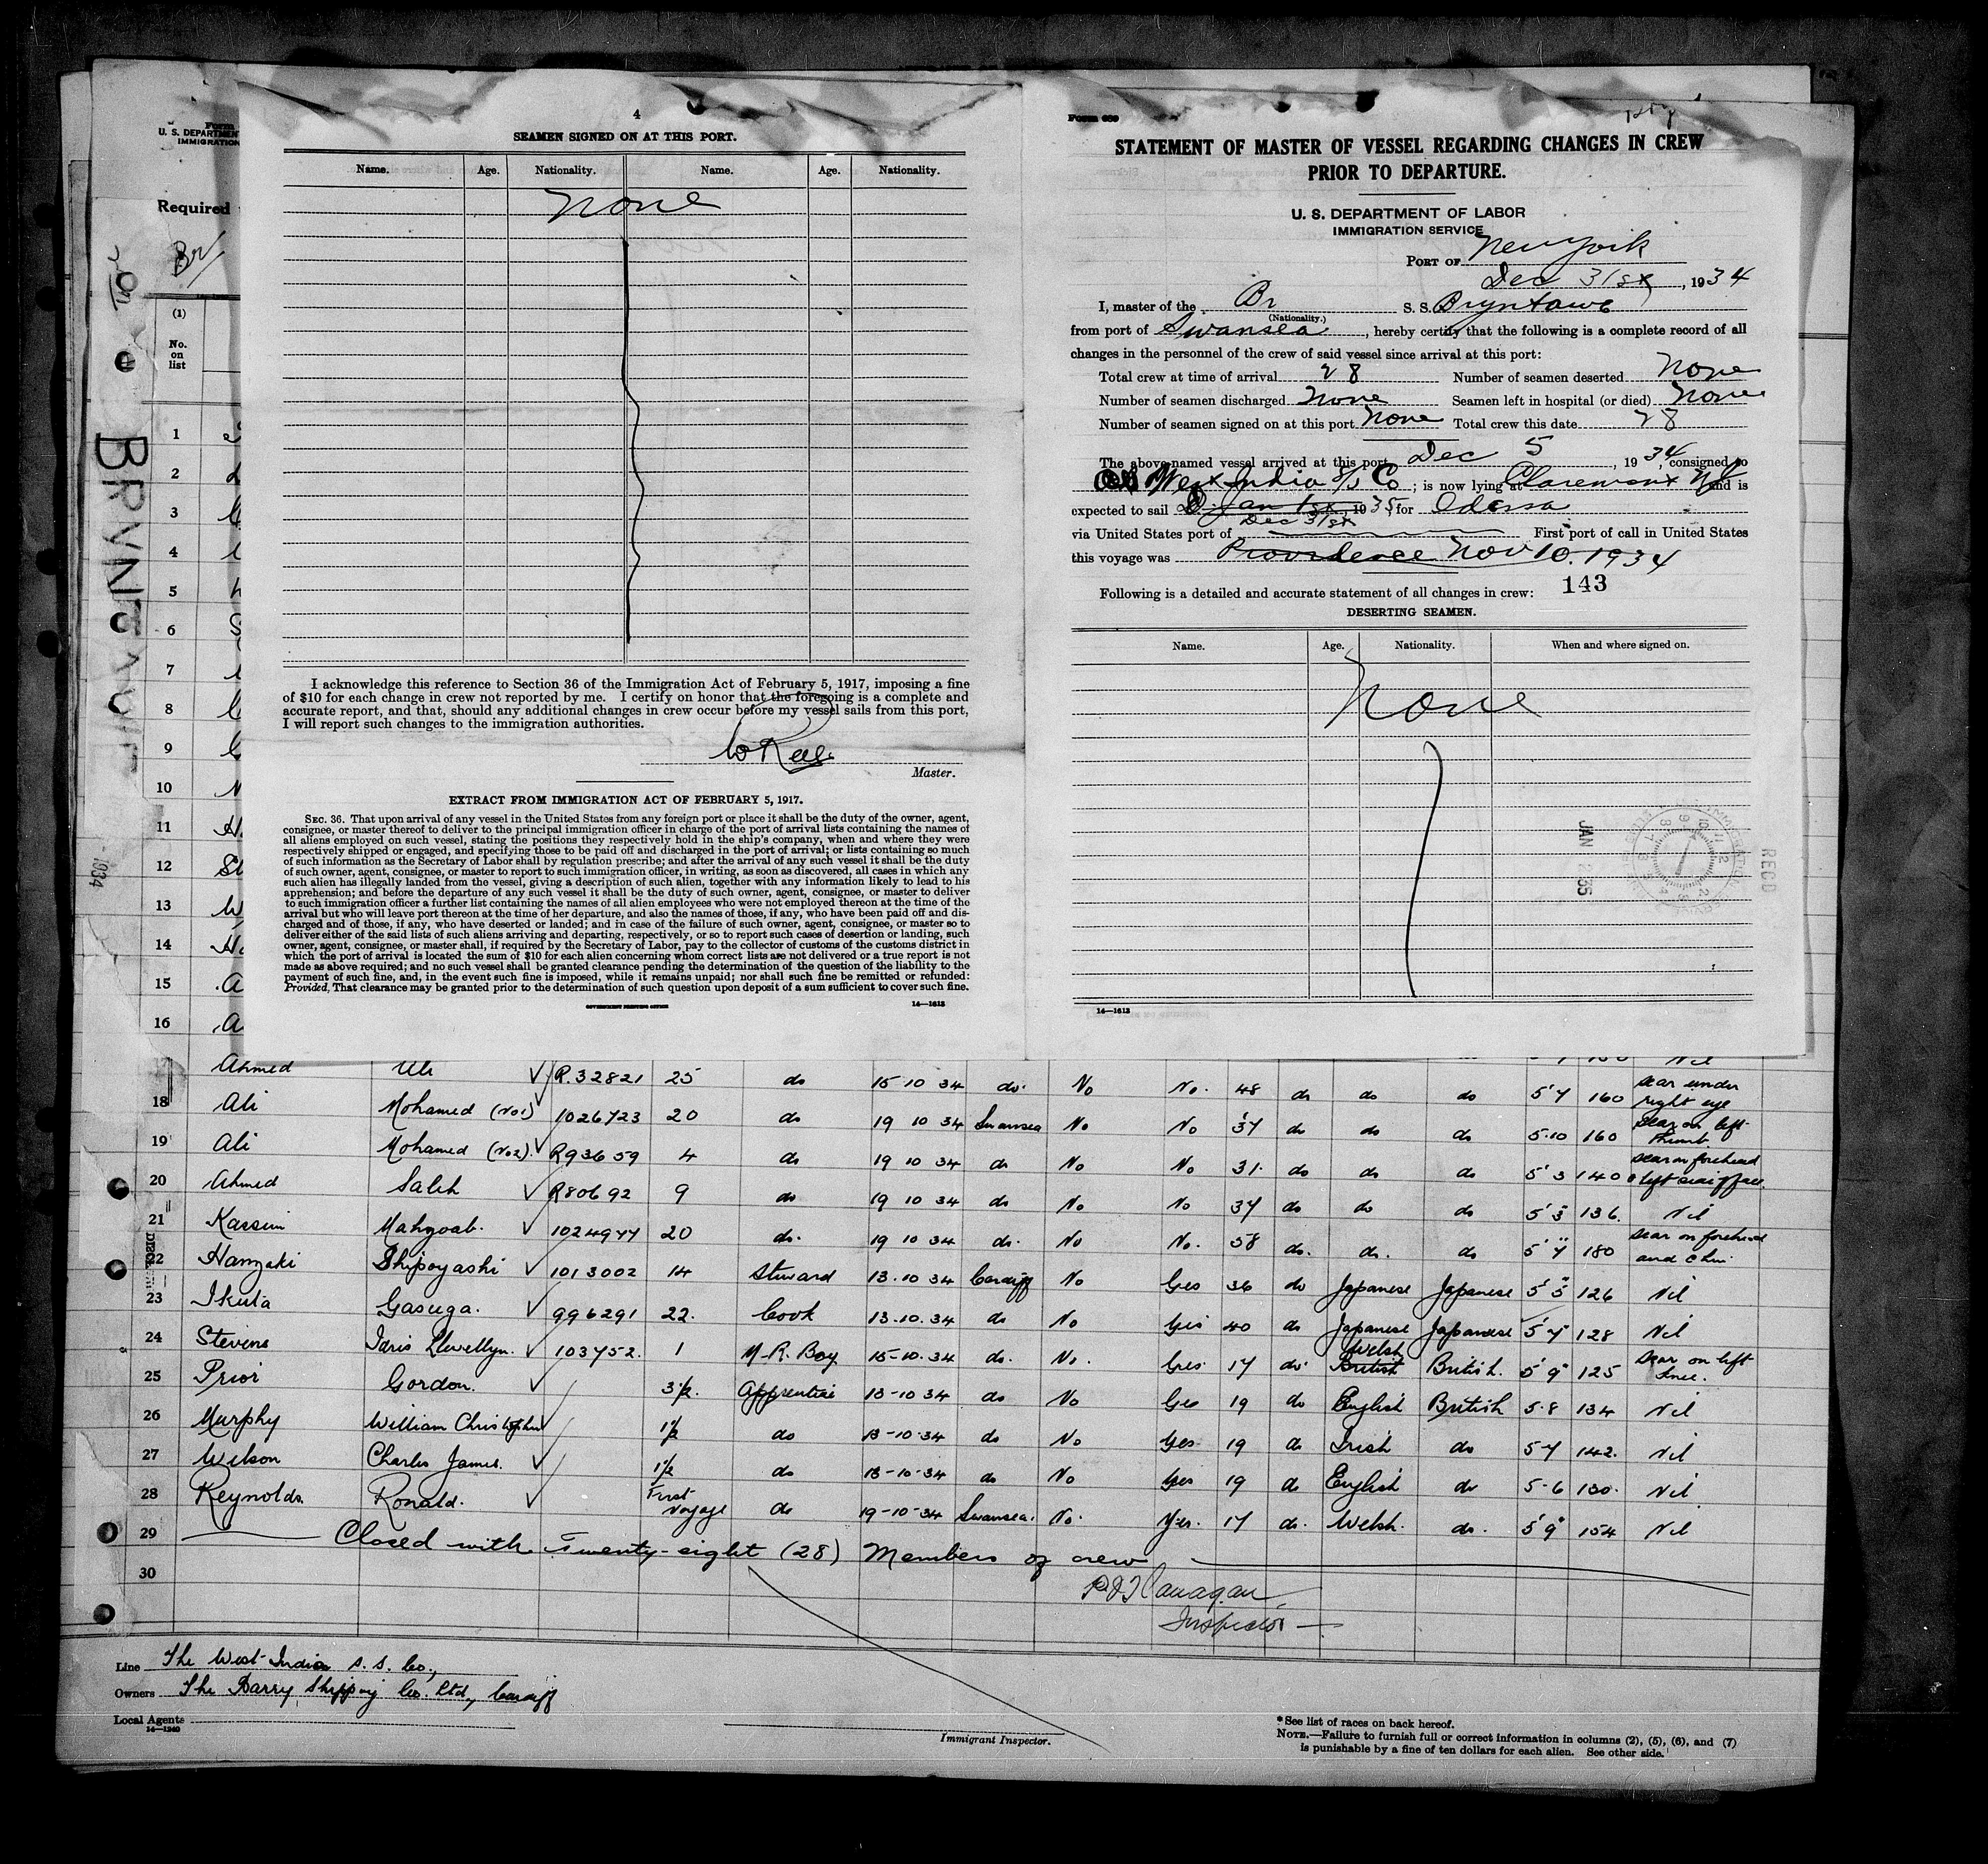 4
SEAMEN SIGNED ON AT THIS PORT.
Name. Age. Nationality. Name. Age. Nationality.
None
I acknowledge this reference to Section 36 of the Immigration Act of February 5, 1917, imposing a fine
of $10 for each change in crew not reported by me. I certify on honor that the foregoing is a complete and
accurate report, and that, should any additional changes in crew occur before my vessel sails from this port,
I will report such changes to the immigration authorities.
Master.
EXTRACT FROM IMMIGRATION ACT OF FEBRUARY 5, 1917.
SEC. 36. That upon arrival of any vessel in the United States from any foreign port or place it shall be the duty of the owner, agent,
consignee, or master thereof to deliver to the principal immigration officer in charge of the port of arrival lists containing the names of
all aliens employed on such vessel, stating the positions they respectively hold in the ship's company, when and where they were
respectively shipped or engaged, and specifying those to be paid off and discharged in the port of arrival; or lists containing so much
of such information as the Secretary of Labor shall by regulation prescribe; and after the arrival of any such vessel it shall be the duty
of such owner, agent, consignee, or master to report to such immigration officer, in writing, as soon as discovered, all cases in which any
such alien has illegally landed from the vessel, giving a description of such alien, together with any information likely to lead to his
apprehension; and before the departure of any such vessel it shall be the duty of such owner, agent, consignee, or master to deliver
to such immigration officer a further list containing the names of all alien employees who were not employed thereon at the time of the
arrival but who will leave port thereon at the time of her departure, and also the names of those, if any, who have been paid off and dis-
charged and of those, if any, who have deserted or landed; and in case of the failure of such owner, agent, consignee, or master so to
deliver either of the said lists of such aliens arriving and departing, respectively, or so to report such cases of desertion or landing, such
owner, agent, consignee, or master shall, if required by the Secretary of Labor, pay to the collector of customs of the customs district in
which the port of arrival is located the sum of $10 for each alien concerning whom correct lists are not delivered or a true report is not
made as above required; and no such vessel shall be granted clearance pending the determination of the question of the liability to the
payment of such fine, and, in the event such fine is imposed, while it remains unpaid; nor shall such fine be remitted or refunded:
Provided, That clearance may be granted prior to the determination of such question upon deposit of a sum sufficient to cover such fine.
GOVERNMENT PRINTING OFFICE 14—1613
Form 689
STATEMENT OF MASTER OF VESSEL REGARDING CHANGES IN CREW
PRIOR TO DEPARTURE.
U. S. DEPARTMENT OF LABOR
IMMIGRATION SERVICE
PORT OF New York
Dec 31st, 1934
I, master of the Br S. S. Bryntawe
(Nationality.)
from port of Swansea, hereby certify that the following is a complete record of all
changes in the personnel of the crew of said vessel since arrival at this port:
Total crew at time of arrival 28 Number of seamen deserted None
Number of seamen discharged None Seamen left in hospital (or died) None
Number of seamen signed on at this port None Total crew this date 28
The above-named vessel arrived at this port Dec 5, 1934, consigned to
West India S/S Co; is now lying at Claremont NJ and is
expected to sail Jan 1st, 1935, for Odessa
Dec 31st
via United States port of First port of call in United States
this voyage was Providence Nov 10. 1934
143
Following is a detailed and accurate statement of all changes in crew:
DESERTING SEAMEN.
Name. Age. Nationality. When and where signed on.
None
JAN 2 35
RECD
14—1613
Form
U. S. DEPARTMENT
IMMIGRATION
Required
Br
(1)
No.
on
list
BRYNTAWE
1934
1
2
3
4
5
6
7
8
9
10
11
12
13
14
15
16
17 Ahmed Ali R.32821 25 do 15 10 34 do. No No. 48 do do do 5'7 160 Scar under right eye
18 Ali Mohamed (No1) 1026723 20 do 19 10 34 Swansea No No 37 do do do 5.10 160 Scar on left thumb
19 Ali Mohamed (No2). R93659 4 do 19 10 34 do No No 31. do do do 5'3 140 scar on forehead & left side of face
20 Ahmed Saleh R80692 9 do 19 10 34 do No No 37 do do do 5'3" 136. Nil
21 Kassim Mahgoab. 1024977 20 do. 19 10 34 do. No No. 38 do. do. do 5'7" 180 Scar on forehead and chin
22 Hamzaki Shipoyashi 1013002 14 Steward 13.10 34 Cardiff No Yes 36 do Japanese Japanese 5'5" 126 Nil
23 Ikuta Gasuga. 996291 22. Cook 13.10.34 do No Yes 40 do Japanese Japanese 5'7" 128 Nil
24 Stevens Idris Llewellyn. 103752. 1 M.R. Boy 15-10.34 do. No. Yes. 17 do. Welsh British British. 5'9" 125 Scar on left knee.
25 Prior Gordon. 3½. Apprentice 13-10 34 do No Yes 19 do English British 5.8 134 Nil
26 Murphy William Christopher 1½ do 13-10-34 do No Yes 19 do Irish do 5-7 142. Nil
27 Wilson Charles James. 1½ do 13-10-34 do No Yes 19 do English do 5-6 130. Nil
28 Reynolds. Ronald. First Voyage do 19-10-34 Swansea. No. Yes. 17 do. Welsh. do. 5'9" 154 Nil
29 Closed with Twenty-eight (28) Members of crew
30
Inspector
Line The West India S. S. Co.,
Owners The Barry Shipping Co. Ltd, Cardiff
Local Agents
14—1240
Immigrant Inspector.
*See list of races on back hereof.
NOTE.—Failure to furnish full or correct information in columns (2), (5), (6), and (7)
is punishable by a fine of ten dollars for each alien. See other side.